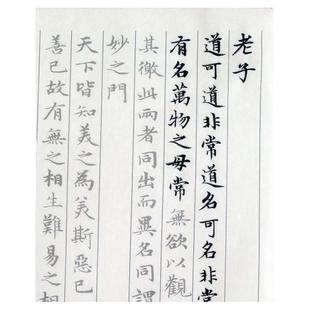 老子
道可道非常道名可名非常
有名萬物之母常無欲以觀
其徼此兩者同出而異名同謂
妙之門
天下皆知美之為美斯惡已
善已故有無之相生難易之相